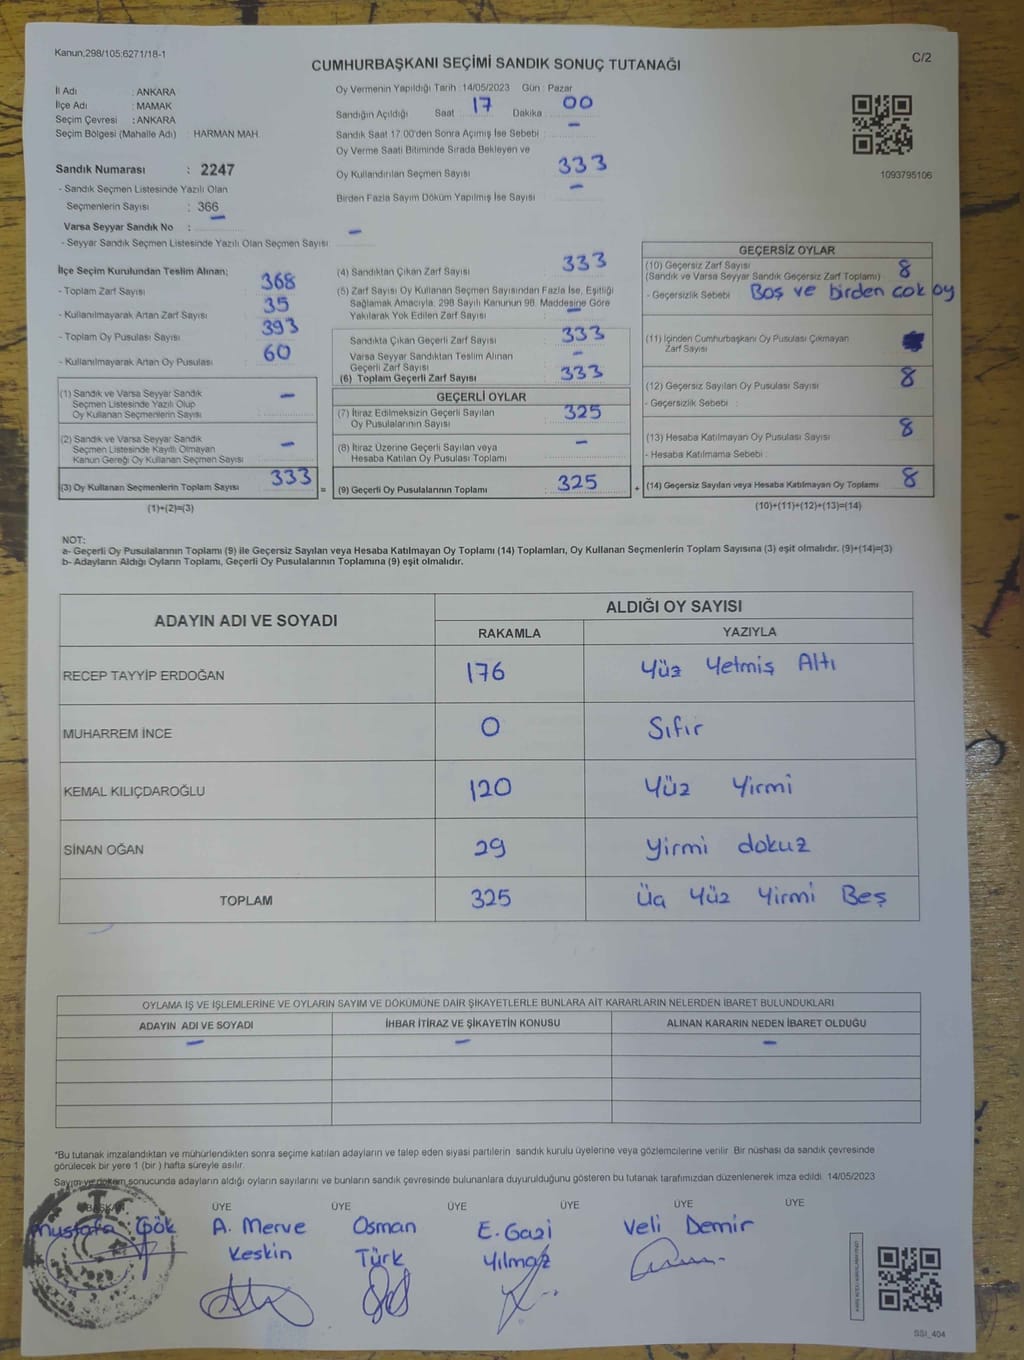 Kanun;298/105;6271/18-1
C/2
CUMHURBAŞKANI SEÇİMİ SANDIK SONUÇ TUTANAĞI
İl Adı : ANKARA
İlçe Adı : MAMAK
Seçim Çevresi : ANKARA
Seçim Bölgesi (Mahalle Adı) : HARMAN MAH.
Oy Vermenin Yapıldığı Tarih : 14/05/2023 Gün : Pazar
Sandığın Açıldığı Saat 17 Dakika : 00
Sandık Saat 17.00'den Sonra Açımış İse Sebebi : –
Oy Verme Saati Bitiminde Sırada Bekleyen ve
Oy Kullandırılan Seçmen Sayısı : 333
Birden Fazla Sayım Döküm Yapılmış İse Sayısı : –
1093795106
Sandık Numarası : 2247
- Sandık Seçmen Listesinde Yazılı Olan
Seçmenlerin Sayısı : 366
Varsa Seyyar Sandık No : –
- Seyyar Sandık Seçmen Listesinde Yazılı Olan Seçmen Sayısı : –
İlçe Seçim Kurulundan Teslim Alınan;
- Toplam Zarf Sayısı : 368
- Kullanılmayarak Artan Zarf Sayısı : 35
- Toplam Oy Pusulası Sayısı : 393
- Kullanılmayarak Artan Oy Pusulası : 60
(1) Sandık ve Varsa Seyyar Sandık
Seçmen Listesinde Yazılı Olup
Oy Kullanan Seçmenlerin Sayısı : –
(2) Sandık ve Varsa Seyyar Sandık
Seçmen Listesinde Kayıtlı Olmayan
Kanun Gereği Oy Kullanan Seçmen Sayısı : –
(3) Oy Kullanan Seçmenlerin Toplam Sayısı : 333
(1)+(2)=(3)
(4) Sandıktan Çıkan Zarf Sayısı : 333
(5) Zarf Sayısı Oy Kullanan Seçmen Sayısından Fazla İse, Eşitliği
Sağlamak Amacıyla, 298 Sayılı Kanunun 98. Maddesine Göre
Yakılarak Yok Edilen Zarf Sayısı : –
Sandıkta Çıkan Geçerli Zarf Sayısı : 333
Varsa Seyyar Sandıktan Teslim Alınan
Geçerli Zarf Sayısı : –
(6) Toplam Geçerli Zarf Sayısı : 333
GEÇERLİ OYLAR
(7) İtiraz Edilmeksizin Geçerli Sayılan
Oy Pusulalarının Sayısı : 325
(8) İtiraz Üzerine Geçerli Sayılan veya
Hesaba Katılan Oy Pusulası Toplamı : –
= (9) Geçerli Oy Pusulalarının Toplamı : 325
GEÇERSİZ OYLAR
(10) Geçersiz Zarf Sayısı
(Sandık ve Varsa Seyyar Sandık Geçersiz Zarf Toplamı) : 8
- Geçersizlik Sebebi : Boş ve birden cok oy
(11) İçinden Cumhurbaşkanı Oy Pusulası Çıkmayan
Zarf Sayısı
(12) Geçersiz Sayılan Oy Pusulası Sayısı : 8
- Geçersizlik Sebebi :
(13) Hesaba Katılmayan Oy Pusulası Sayısı : 8
- Hesaba Katılmama Sebebi :
+ (14) Geçersiz Sayılan veya Hesaba Katılmayan Oy Toplamı : 8
(10)+(11)+(12)+(13)=(14)
NOT:
a- Geçerli Oy Pusulalarının Toplamı (9) ile Geçersiz Sayılan veya Hesaba Katılmayan Oy Toplamı (14) Toplamları, Oy Kullanan Seçmenlerin Toplam Sayısına (3) eşit olmalıdır. (9)+(14)=(3)
b- Adayların Aldığı Oyların Toplamı, Geçerli Oy Pusulalarının Toplamına (9) eşit olmalıdır.
ADAYIN ADI VE SOYADI
ALDIĞI OY SAYISI
RAKAMLA YAZIYLA
RECEP TAYYİP ERDOĞAN 176 Yüz Yetmiş Altı
MUHARREM İNCE 0 Sıfır
KEMAL KILIÇDAROĞLU 120 Yüz Yirmi
SİNAN OĞAN 29 Yirmi dokuz
TOPLAM 325 Üç Yüz Yirmi Beş
OYLAMA İŞ VE İŞLEMLERİNE VE OYLARIN SAYIM VE DÖKÜMÜNE DAİR ŞİKAYETLERLE BUNLARA AİT KARARLARIN NELERDEN İBARET BULUNDUKLARI
ADAYIN ADI VE SOYADI İHBAR İTİRAZ VE ŞİKAYETİN KONUSU ALINAN KARARIN NEDEN İBARET OLDUĞU
– – –
*Bu tutanak imzalandıktan ve mühürlendikten sonra seçime katılan adayların ve talep eden siyasi partilerin sandık kurulu üyelerine veya gözlemcilerine verilir. Bir nüshası da sandık çevresinde
görülecek bir yere 1 (bir ) hafta süreyle asılır.
Sayım ve döküm sonucunda adayların aldığı oyların sayılarını ve bunların sandık çevresinde bulunanlara duyurulduğunu gösteren bu tutanak tarafımızdan düzenlenerek imza edildi. 14/05/2023
BAŞKAN ÜYE ÜYE ÜYE ÜYE ÜYE ÜYE
Mustafa Gök A. Merve Osman E. Gazi Veli Demir
Keskin Türk Yılmaz
SSI_404